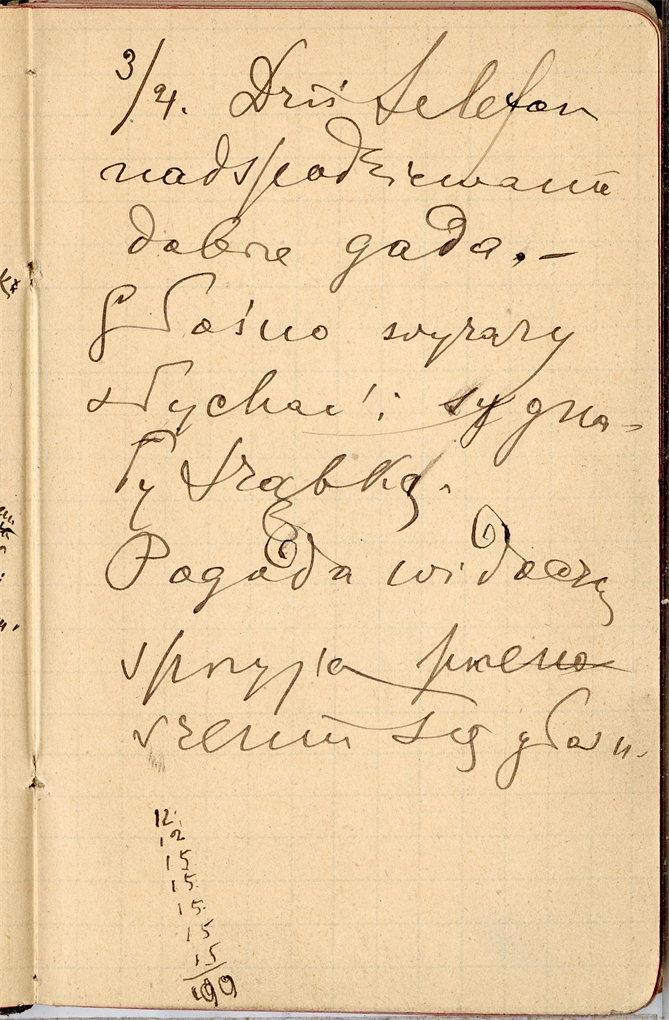 3/4. Dziś telefon
nadspodziewanie
dobrze gada. –
Głośno wyrazy
słychać i sygna-
ły trąbką.
Pogoda widoczn
sprzyja przeno
szeniu się głosu.
12.
12
15
15.
15.
15
15
99